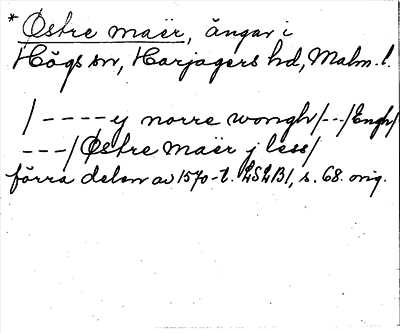 * Østre maër, ängar i
Högs sn, Harjagers hd, Malm. l.
/ - - - - y norre wongh/- -/Engh/
- - -/ Østre maër j less/
förra delen av 1570-t. LSLB1, s. 68. orig.